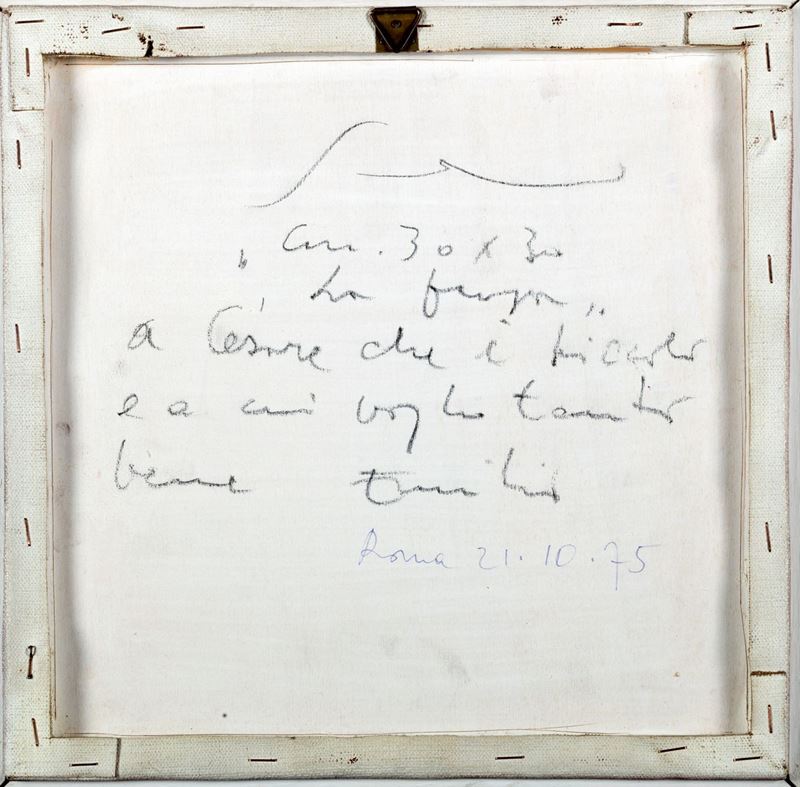 „ cm. 30 x 30
La fuga „
a Césare che è piccolo
e a cui voglio tanto
bene
Roma 21.10.75